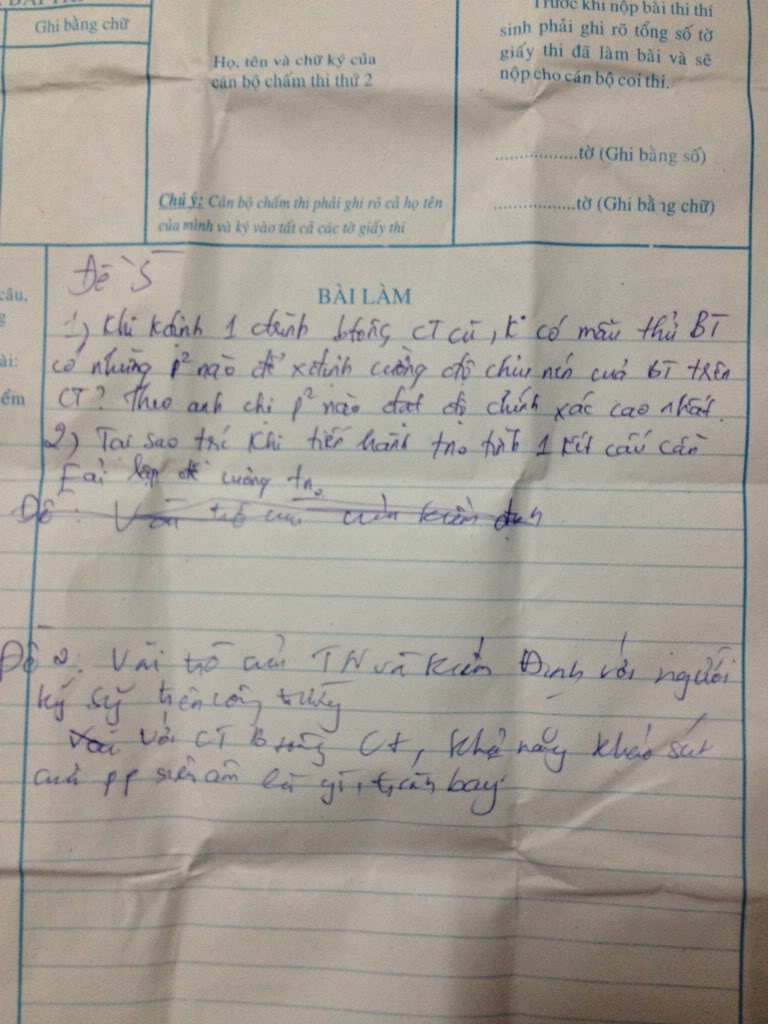 Ghi bằng chữ
Họ, tên và chữ ký của
cán bộ chấm thi thứ 2
Chú ý: Cán bộ chấm thi phải ghi rõ cả họ tên
của mình và ký vào tất cả các tờ giấy thi
Trước khi nộp bài thi thí
sinh phải ghi rõ tổng số tờ
giấy thi đã làm bài và sẽ
nộp cho cán bộ coi thi.
..................tờ (Ghi bằng số)
.................tờ (Ghi bằng chữ)
câu,
ài:
ểm
Đề 5
BÀI LÀM
1) Khi kđịnh 1 ctrình bтông CT cũ, k° có mẫu thử BT
có những p² nào để xđịnh cường độ chịu nén của BT trên
CT? Theo anh chị p² nào đạt độ chính xác cao nhất.
2) Tại sao trc khi tiến hành tno tĩnh 1 kết cấu cần
fải lập đề cương tno
Đề 2: Vai trò của TN và kiểm Định với người
kỹ sư trên công trường
với CT B tông Ct, khả năng khảo sát
của pp siêu âm là gì, trình bày